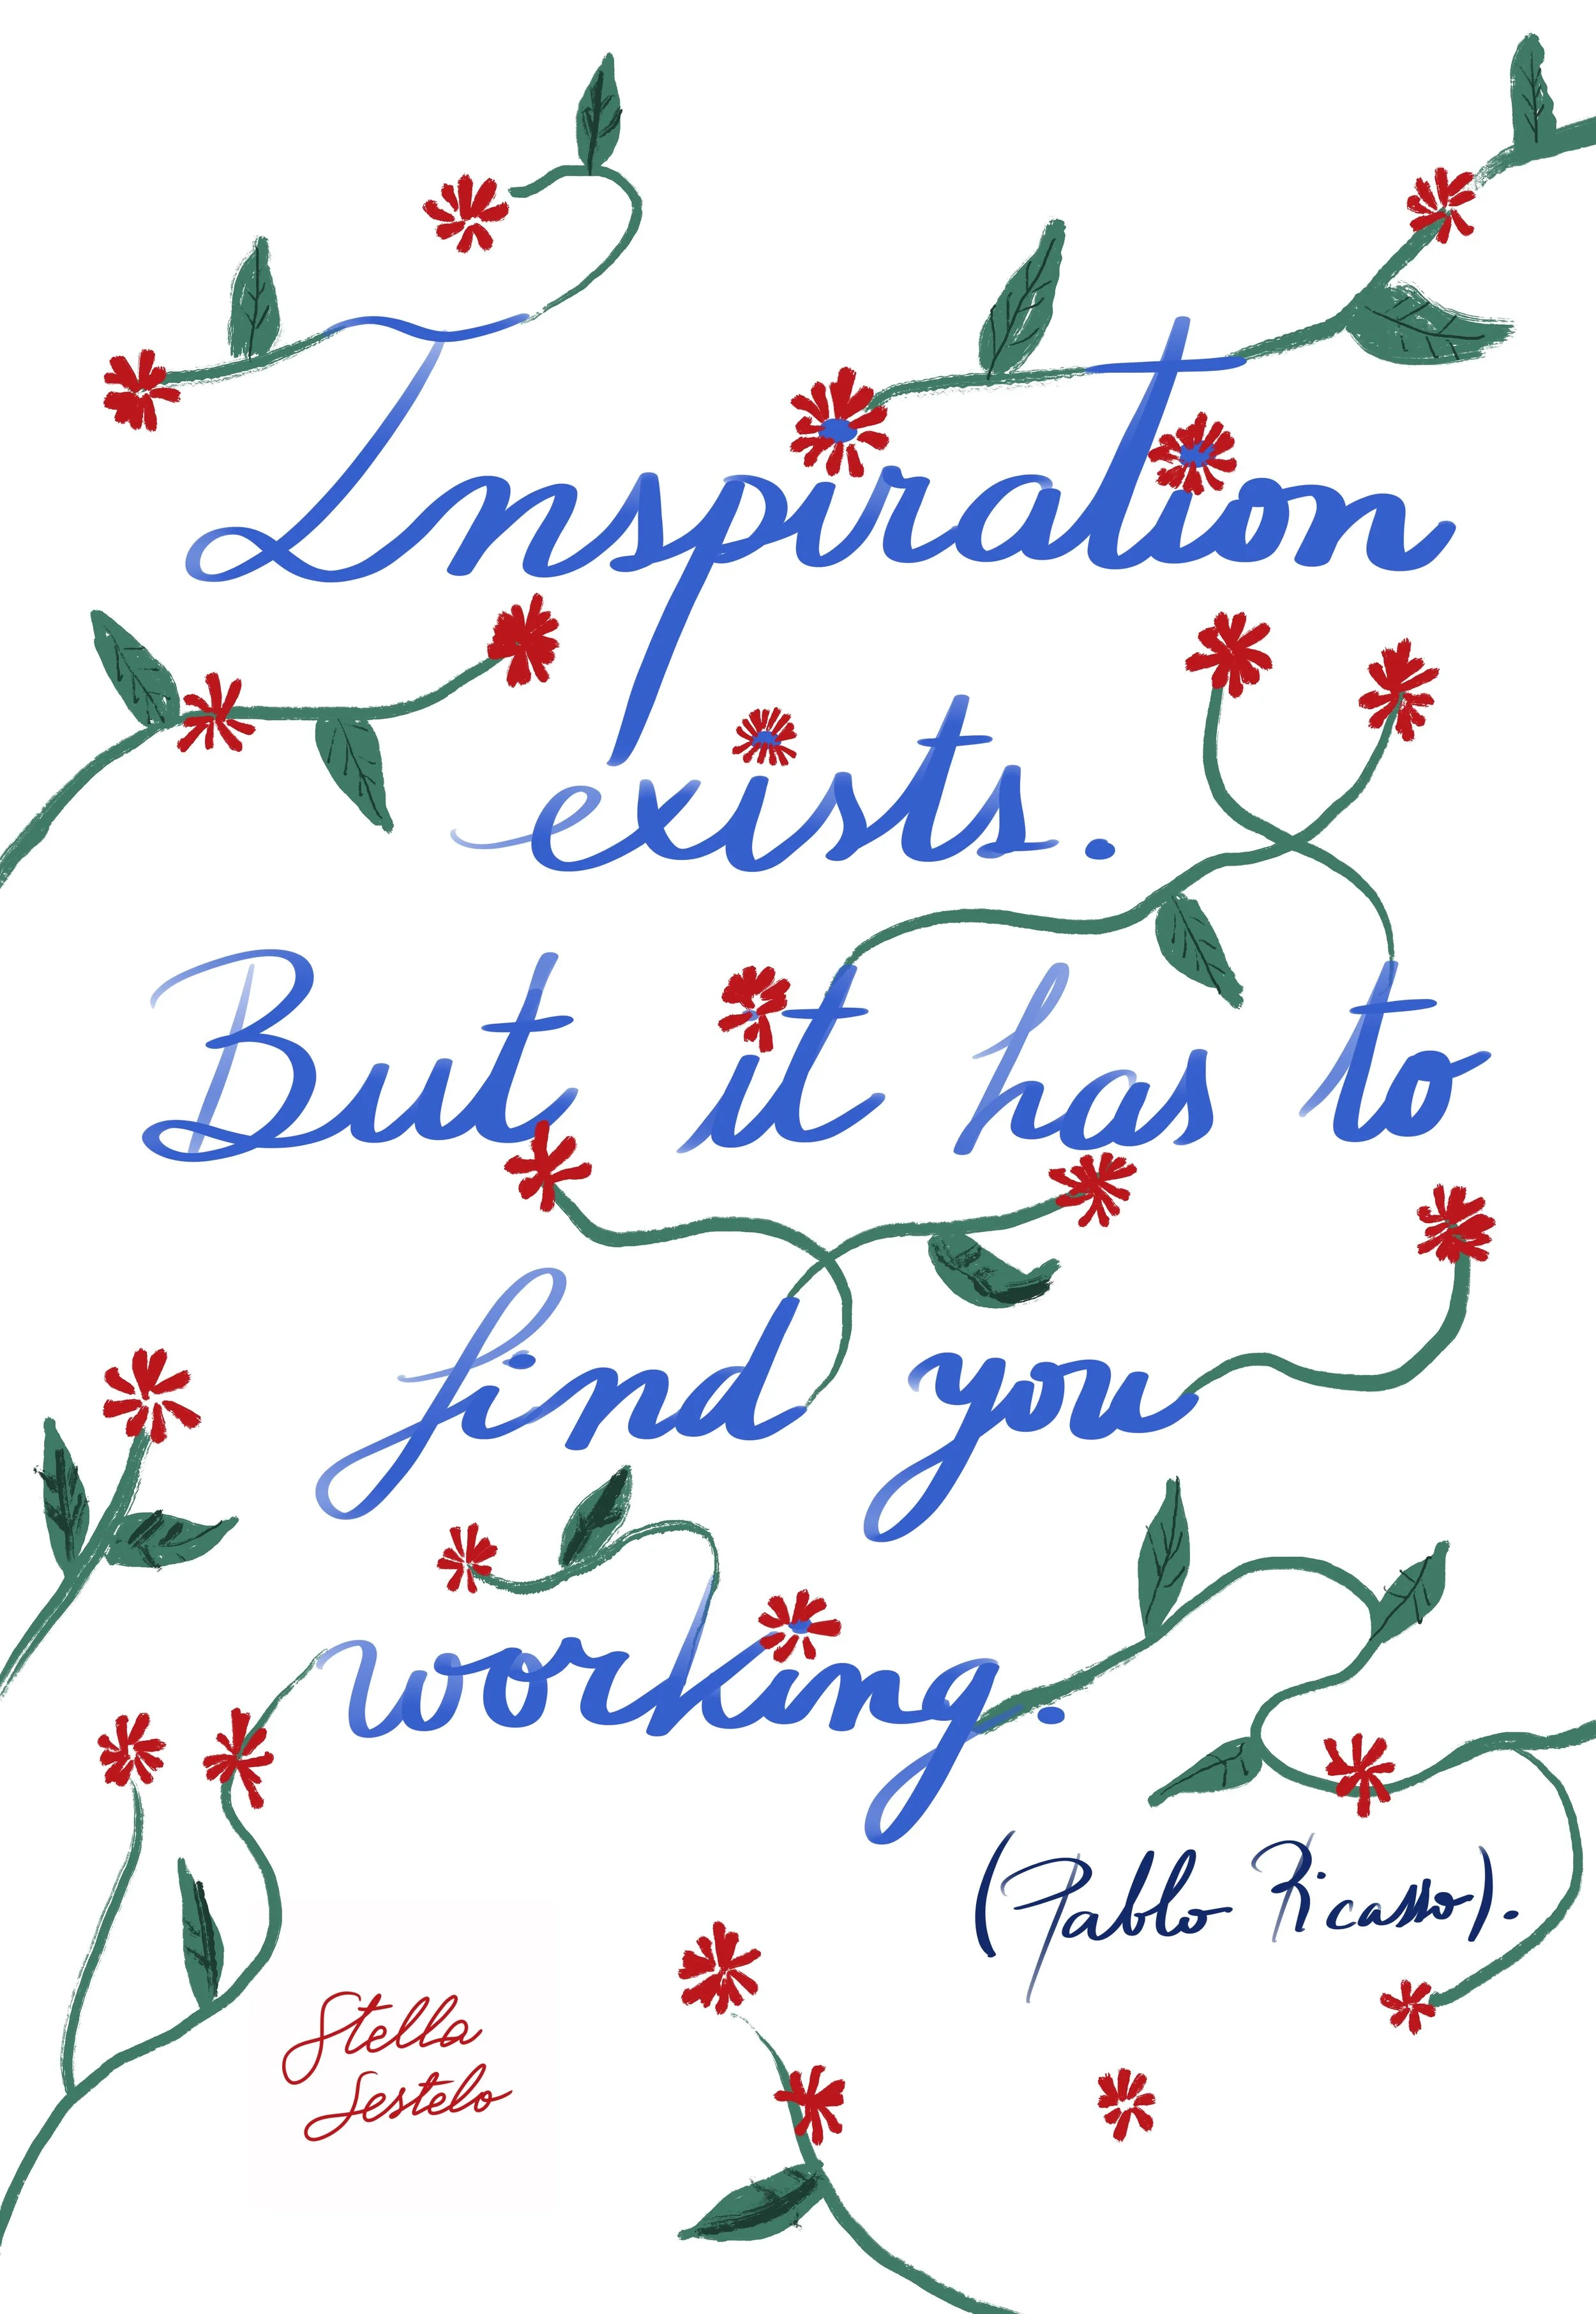 Inspiration
exists.
But it has to
find you
working.
(Pablo Picasso).
Stella
Sestelo